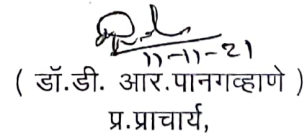 11-11-21
( डॉ.डी. आर.पानगव्हाणे )
प्र.प्राचार्य,